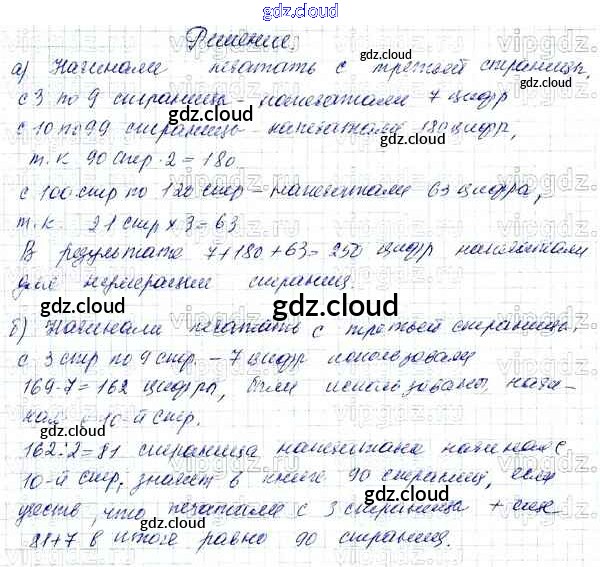 gdz.cloud
Решение.
а) Начинали печатать с третьей страницы,
с 3 по 9 страницы - напечатали 7 цифр
с 10 по 99 страницы - напечатали 180 цифр,
т.к 90 стр · 2 = 180.
с 100 стр по 120 стр - напечатали 63 цифра,
т.к. 21 стр × 3 = 63
В результате 7+180+63=250 цифр напечатали
для нумерации страниц.
б) Начинали печатать с третьей страницы.
с 3 стр по 9 стр. - 7 цифр использовали
169-7=162 цифра, были использованы, начи-
ная с 10-й стр.
162:2=81 страница напечатана начиная с
10-й стр, значит в книге 90 страниц, если
учесть, что печатали с 3 страница + еще
81+7 в итоге равно 90 страниц.
gdz.cloud
gdz.cloud
gdz.cloud
gdz.cloud
gdz.cloud
gdz.cloud
gdz.cloud
gdz.cloud
gdz.cloud
vipgdz.